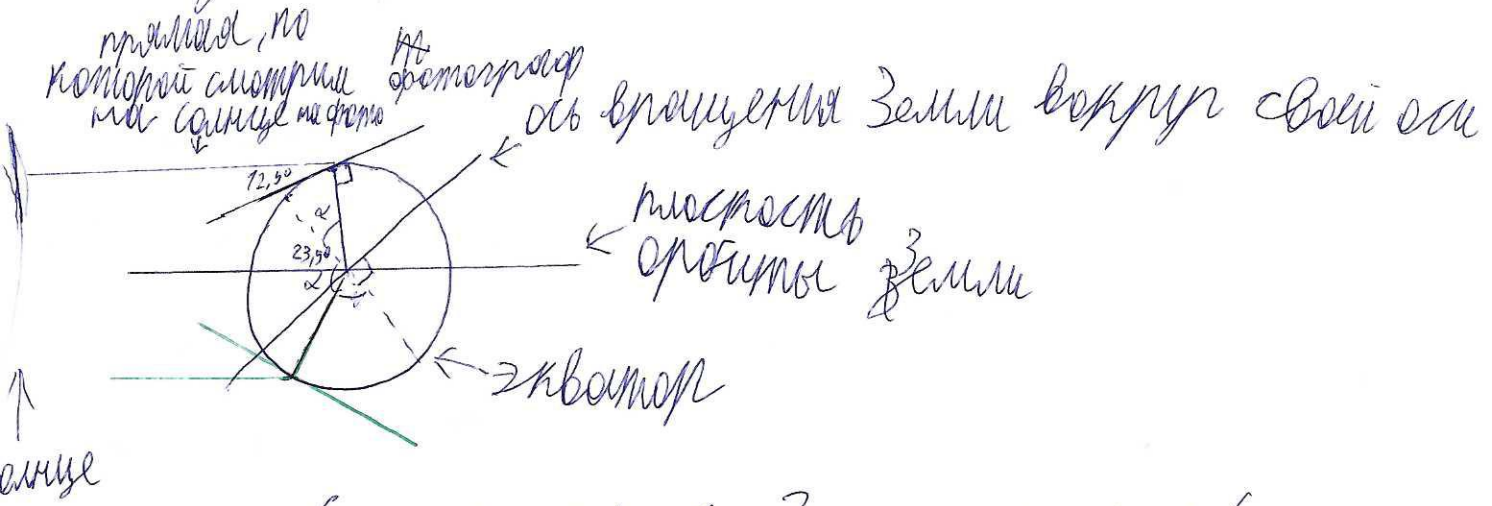 прямая, по
которой смотрим фотограф
на солнце на фото
ось вращения Земли вокруг своей оси
12,5°
α
23,5°
α
плоскость
орбиты Земли
экватор
олнце